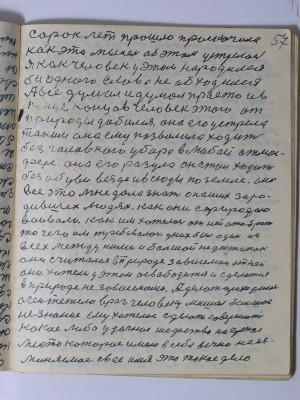 57
Сорок лет прошло при
как это мысль об этом устроил
Я как человек у этом народился
би одного слова не обходился
А все думал и думал просто и в
конце концов человек этого от
природы добился, она его устроила
таким она ему позволила ходить
без головного убора в любой атмос-
фере. она его разула он стал ходить
без обуви везде и всюды по земле.
Все это мне дало знать о наших заро-
дившихся людях. как они с природою
воевали. как им хотелось от ней добиться
то чего им требовалось у них был один из
всех между ними и большой недостаток
они считались в природе зависимы от ней
они хотели у этом освободиться и сделаться
в природе независимы. А делом
ему человеку мешал большое
незнание ему хотелось сделать
какое либо удачное
место которое имело в себе вечно неиз-
менимое свое имя это такое дело